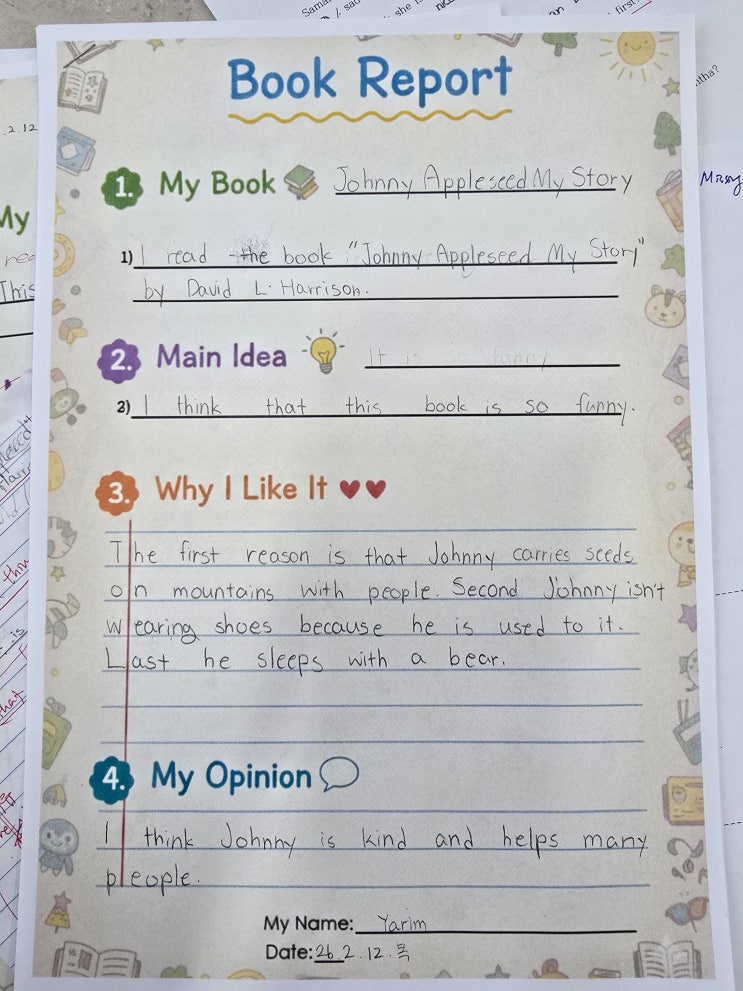 Book Report
1. My Book Johnny Appleseed My Story
1) I read the book "Johnny Appleseed My Story"
by David L. Harrison.
2. Main Idea It is so funny
2) I think that this book is so funny.
3. Why I Like It
The first reason is that Johnny carries seeds
on mountains with people. Second Johnny isn't
wearing shoes because he is used to it.
Last he sleeps with a bear.
4. My Opinion
I think Johnny is kind and helps many
people.
My Name: Yarim
Date: 26.2.12.목
.2.12
My
This
she is
first
itha?